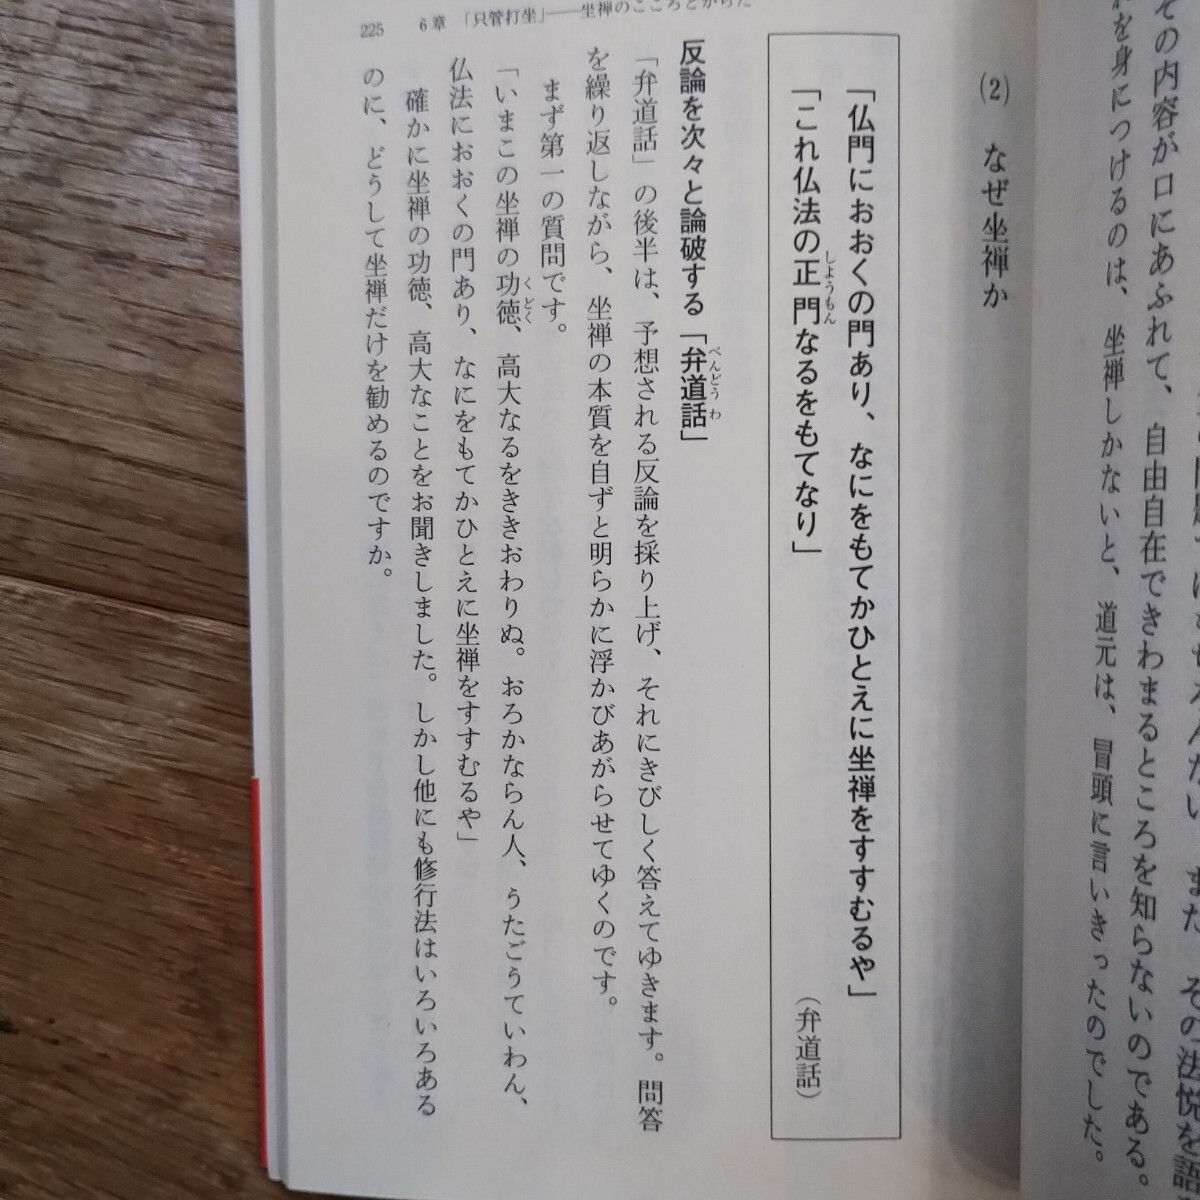 その内容が口にあふれて、自由自在できわまるところを知らないのである。
を身につけるのは、坐禅しかないと、道元は、冒頭に言いきったのでした。
225　6章　「只管打坐」――坐禅のこころとからだ
(2)　なぜ坐禅か
「仏門におおくの門あり、なにをもてかひとえに坐禅をすすむるや」
「これ仏法の正門なるをもてなり」
しようもん
（弁道話）
反論を次々と論破する「弁道話」
べんどうわ
「弁道話」の後半は、予想される反論を採り上げ、それにきびしく答えてゆきます。問答
を繰り返しながら、坐禅の本質を自ずと明らかに浮かびあがらせてゆくのです。
まず第一の質問です。
「いまこの坐禅の功徳、高大なるをききおわりぬ。おろかならん人、うたごうていわん、
くどく
仏法におおくの門あり、なにをもてかひとえに坐禅をすすむるや」
確かに坐禅の功徳、高大なことをお聞きしました。しかし他にも修行法はいろいろある
のに、どうして坐禅だけを勧めるのですか。